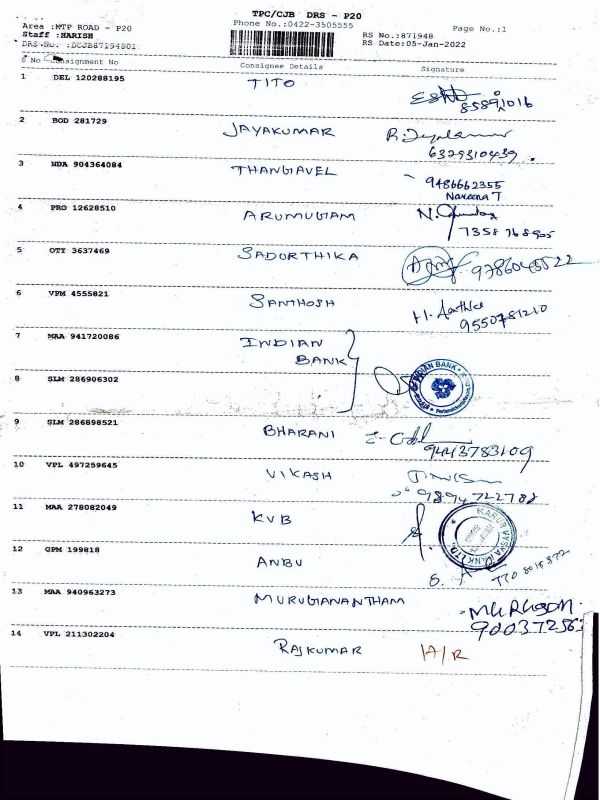 TPC/CJB DRS - P20
Area :MTP ROAD - P20 Phone No.:0422-3505555 Page No.:1
Staff :HARISH RS No.:871948
DRS No. :DCJB87194801 RS Date:05-Jan-2022
S No Consignment No Consignee Details Signature
1 DEL 120288195 TITO
2 BOD 281729 JAYAKUMAR
6379310439.
3 NDA 904364084 THANGAVEL 9486662355
Naveena T
4 PRO 12628510 ARUMUGAM
5 OTY 3637469 SADURTHIKA 9786045522
6 VPM 4555821 SANTHOSH
9550781210
7 MAA 941720086 INDIAN
BANK
INDIAN BANK
8 SLM 286906302
9 SLM 286898521 BHARANI
9443783109
10 VPL 497259645 VIKASH
9894722788
11 MAA 278082049 KVB
KARUR VYSYA BANK LTD.
12 GPM 199818 ANBU
13 MAA 940963273 MURUGANANTHAM
14 VPL 211302204 RAJKUMAR H/R